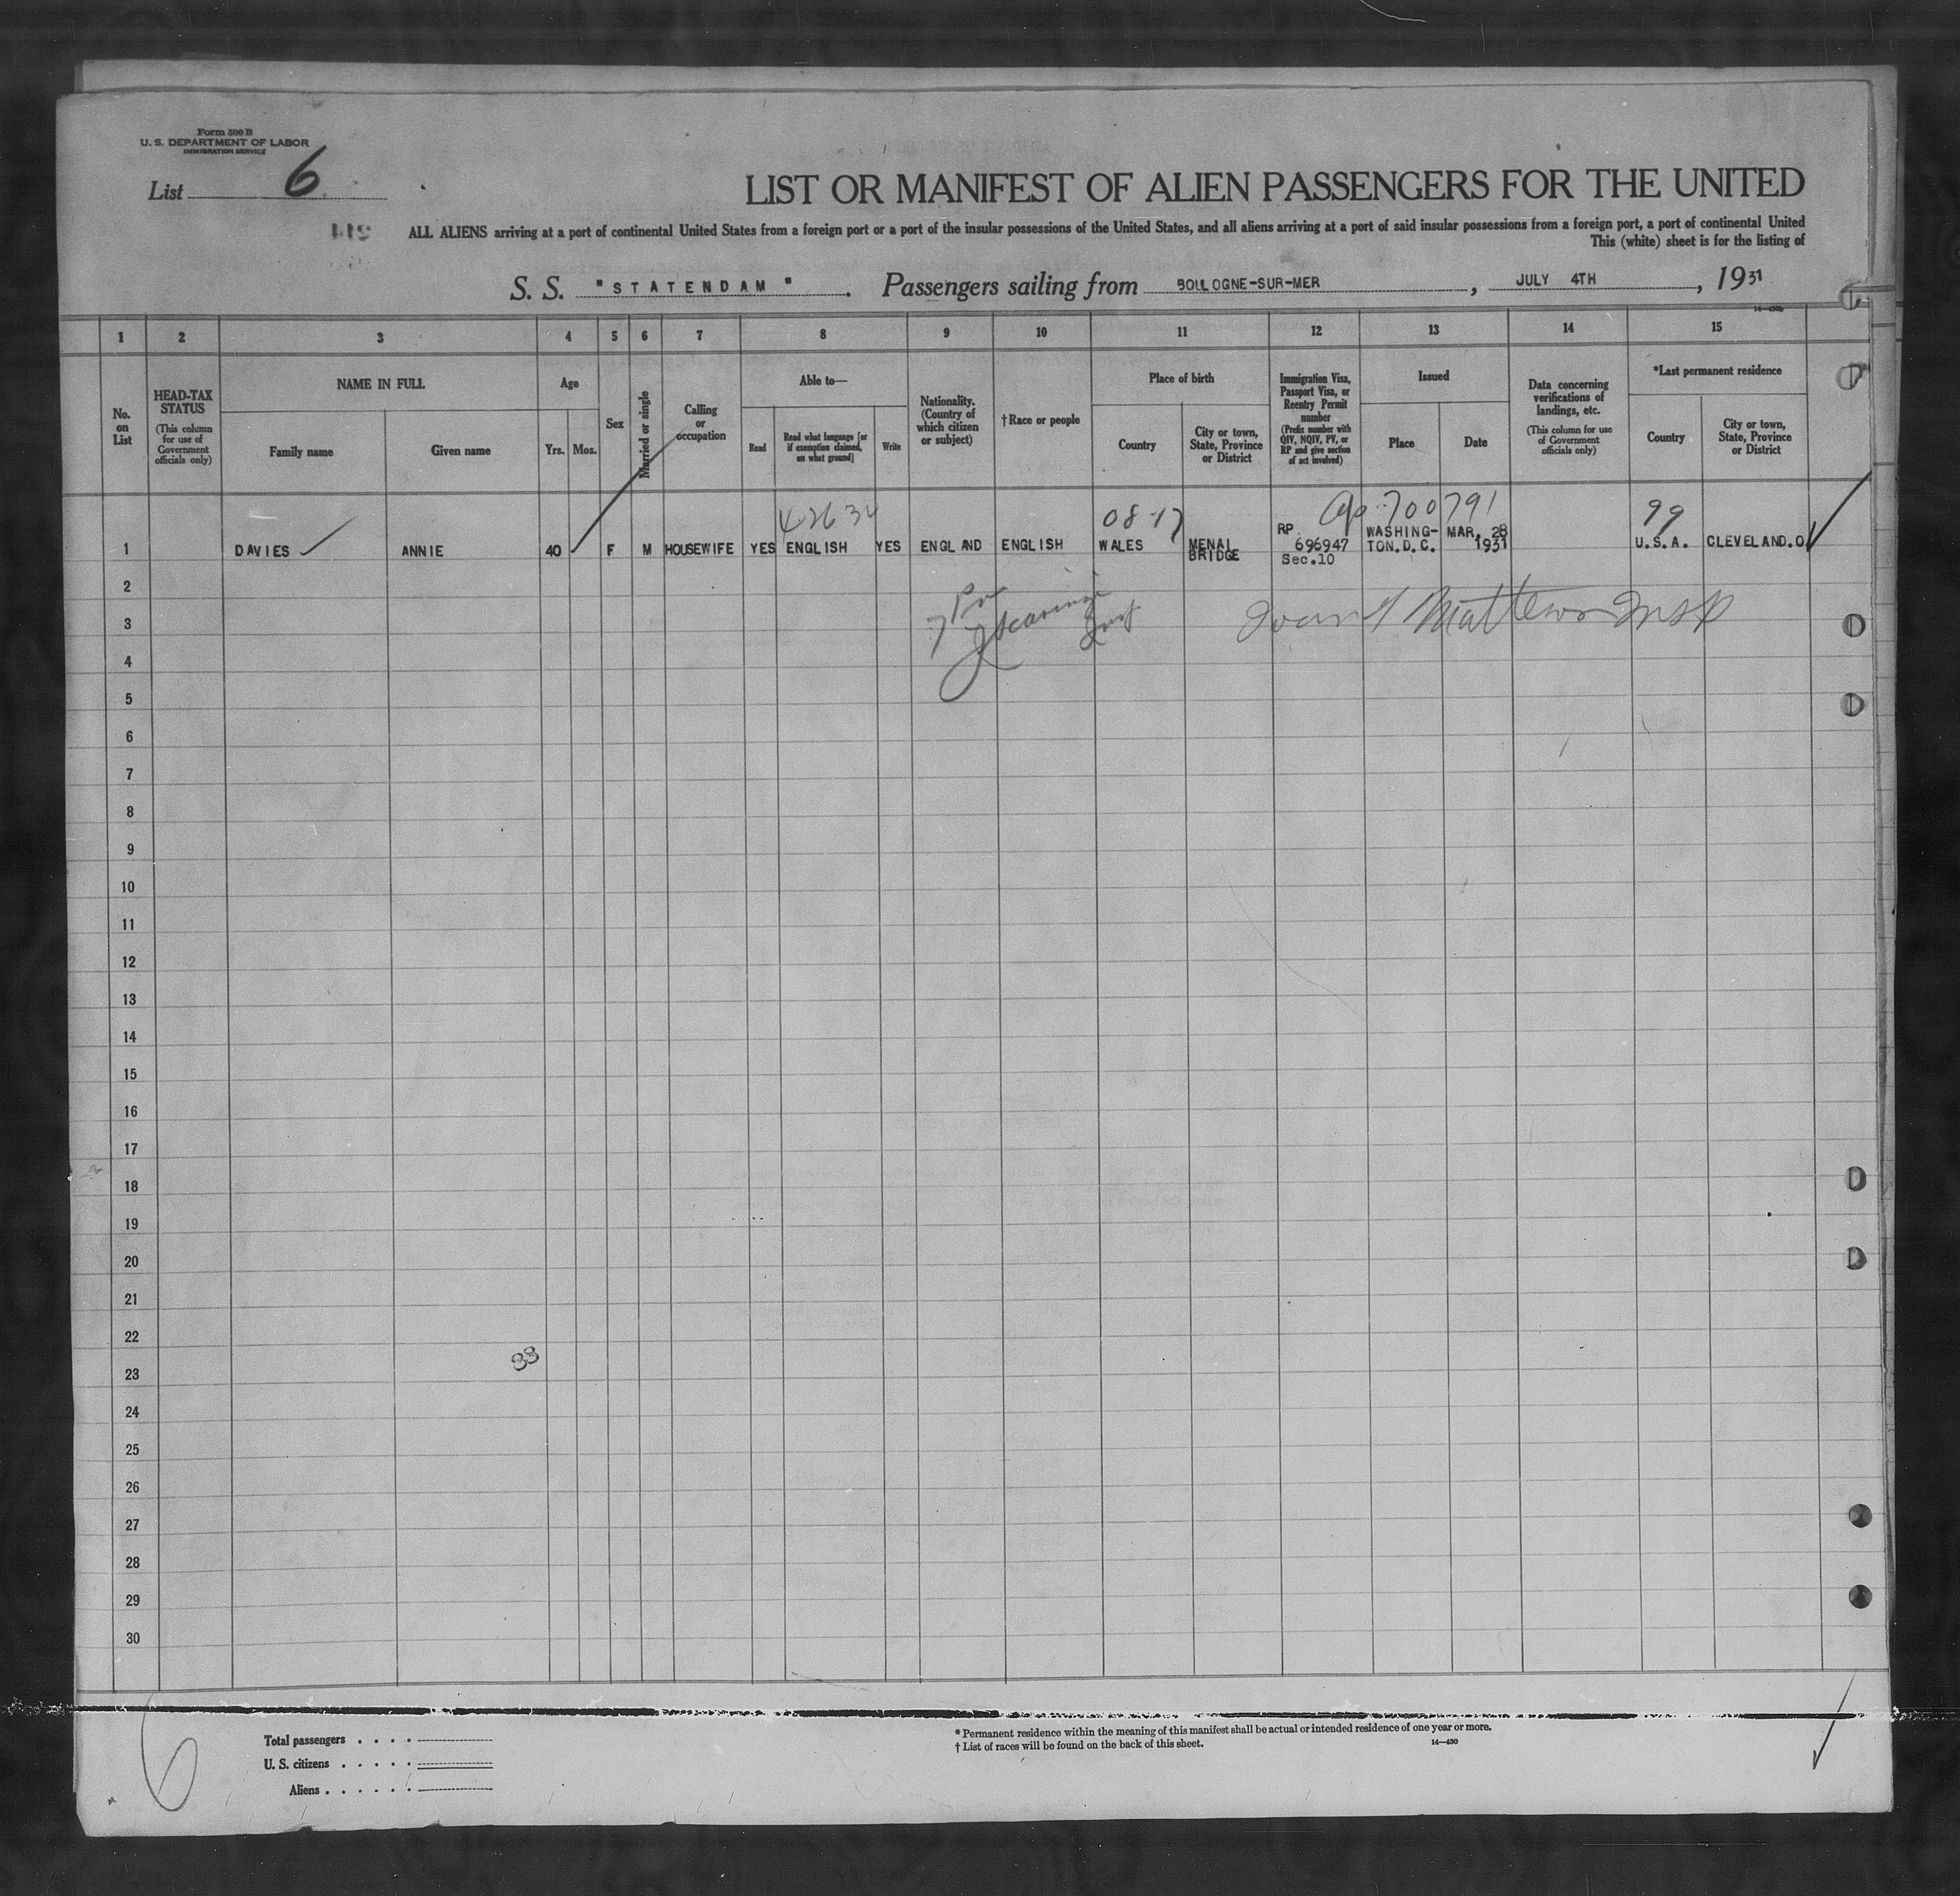 Form 500 B
U. S. DEPARTMENT OF LABOR
IMMIGRATION SERVICE
List 6
LIST OR MANIFEST OF ALIEN PASSENGERS FOR THE UNITED
ALL ALIENS arriving at a port of continental United States from a foreign port or a port of the insular possessions of the United States, and all aliens arriving at a port of said insular possessions from a foreign port, a port of continental United
This (white) sheet is for the listing of
S. S. "STATENDAM". Passengers sailing from BOULOGNE-SUR-MER, JULY 4TH, 1931
1 2 3 4 5 6 7 8 9 10 11 12 13 14 15
No. on List
HEAD-TAX STATUS (This column for use of Government officials only)
NAME IN FULL
Family name
Given name
Age
Yrs. Mos.
Sex
Married or single
Calling or occupation
Able to—
Read
Read what language [or if exemption claimed, on what ground]
Write
Nationality. (Country of which citizen or subject)
†Race or people
Place of birth
Country
City or town, State, Province or District
Immigration Visa, Passport Visa, or Reentry Permit number (Prefix number with QIV, NQIV, PV, or RP and give section of act involved)
Issued
Place
Date
Data concerning verifications of landings, etc. (This column for use of Government officials only)
*Last permanent residence
Country
City or town, State, Province or District
08-17 700791 99
1 DAVIES ANNIE 40 F M HOUSEWIFE YES ENGLISH YES ENGLAND ENGLISH WALES MENAI BRIDGE RP. 696947 Sec.10 WASHINGTON.D.C. MAR. 28 1931 U.S.A. CLEVELAND.O
2
3
Mattews Insp
4
5
6
7
8
9
10
11
12
13
14
15
16
17
18
19
20
21
22
33
23
24
25
26
27
28
29
30
6
Total passengers . . . .
U. S. citizens . . . . .
Aliens . . . . . .
* Permanent residence within the meaning of this manifest shall be actual or intended residence of one year or more.
† List of races will be found on the back of this sheet.
14—430